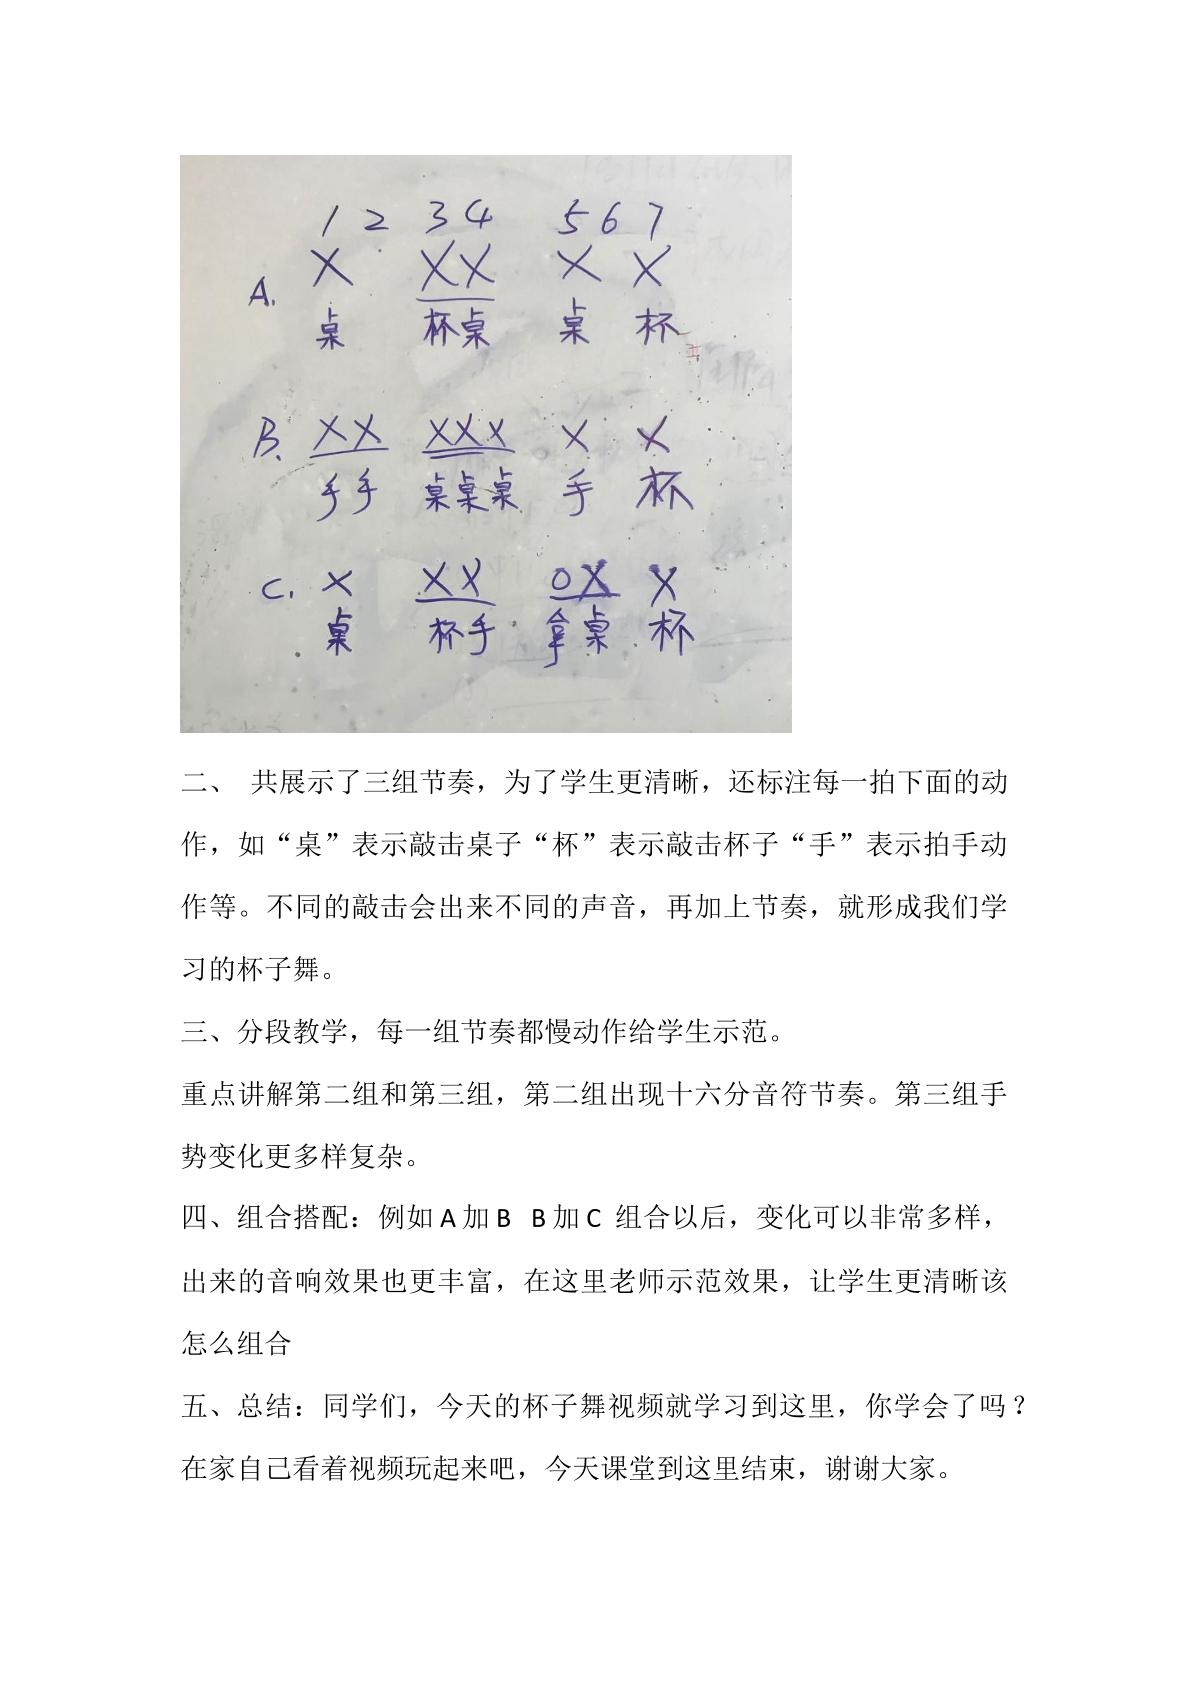 1 2 3 4 5 6 7
A. X XX X X
桌 杯桌 桌 杯
B. XX XXX X X
手手 桌桌桌 手 杯
C. X XX 0X X
桌 杯手 拿桌 杯
二、 共展示了三组节奏，为了学生更清晰，还标注每一拍下面的动
作，如“桌”表示敲击桌子“杯”表示敲击杯子“手”表示拍手动
作等。不同的敲击会出来不同的声音，再加上节奏，就形成我们学
习的杯子舞。
三、分段教学，每一组节奏都慢动作给学生示范。
重点讲解第二组和第三组，第二组出现十六分音符节奏。第三组手
势变化更多样复杂。
四、组合搭配：例如 A 加 B B 加 C 组合以后，变化可以非常多样，
出来的音响效果也更丰富，在这里老师示范效果，让学生更清晰该
怎么组合
五、总结：同学们，今天的杯子舞视频就学习到这里，你学会了吗？
在家自己看着视频玩起来吧，今天课堂到这里结束，谢谢大家。